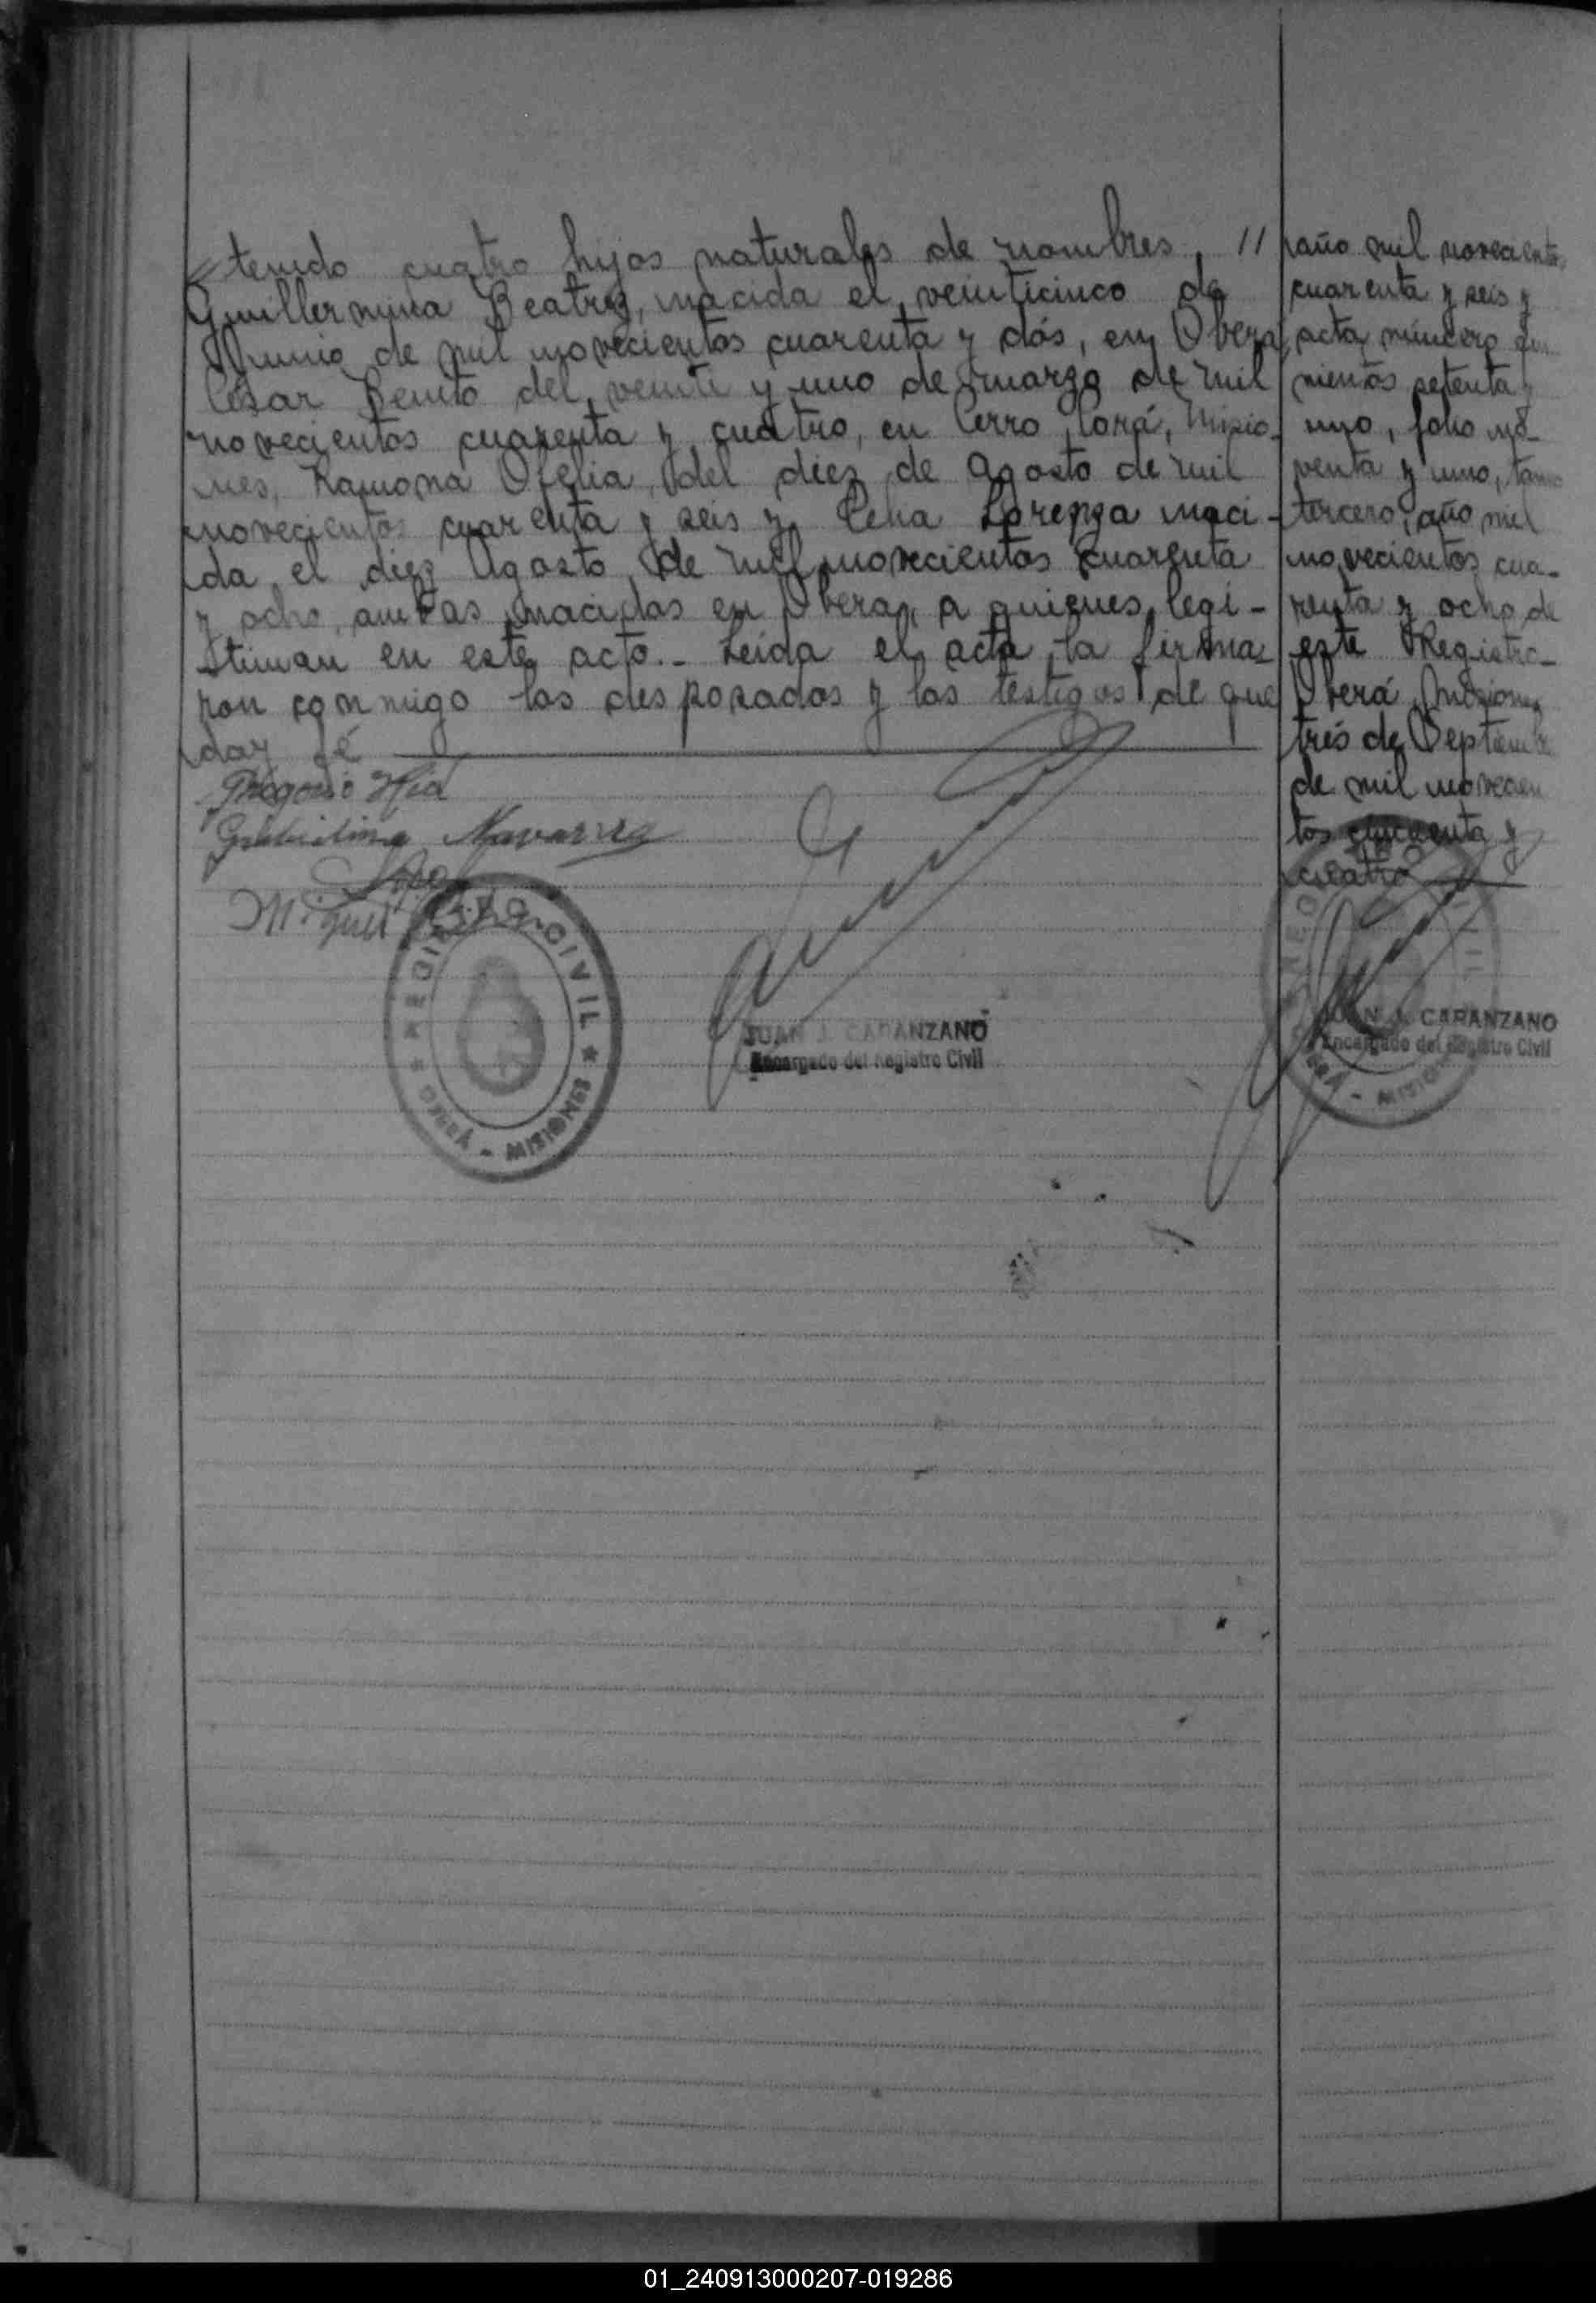 tenido cuatro hijos naturales de nombres, //
Guillermina Beatriz, nacida el veinticinco de
Junio de mil novecientos cuarenta y dós, en Oberá,
César Benito del veinte y uno de marzo de mil
novecientos cuarenta y cuatro, en Cerro Corá, Misio-
nes, Ramona Ofelia, del diez de Agosto de mil
novecientos cuarenta y seis y Celia Lorenza naci-
da el diez Agosto de mil novecientos cuarenta
y ocho, ambas nacidas en Oberá, a quienes legi-
timan en este acto.- Leída el acta, la firma-
ron conmigo los desposados y los testigos de que
doy fé
Gregorio
Navarro
Miguel
REGISTRO CIVIL
OBERÁ - MISIONES
JUAN J. CARANZANO
Encargado del Registro Civil
año mil novecientos
cuarenta y seis y
acta número qui
nientos setenta y
uno, folio no-
venta y uno, tomo
tercero, año mil
novecientos cua-
renta y ocho de
este Registro-
Oberá, Misiones,
trés de Septiembre
de mil novecien
tos cincuenta y
cuatro
JUAN J. CARANZANO
Encargado del Registro Civil
MISIONES
01_240913000207-019286